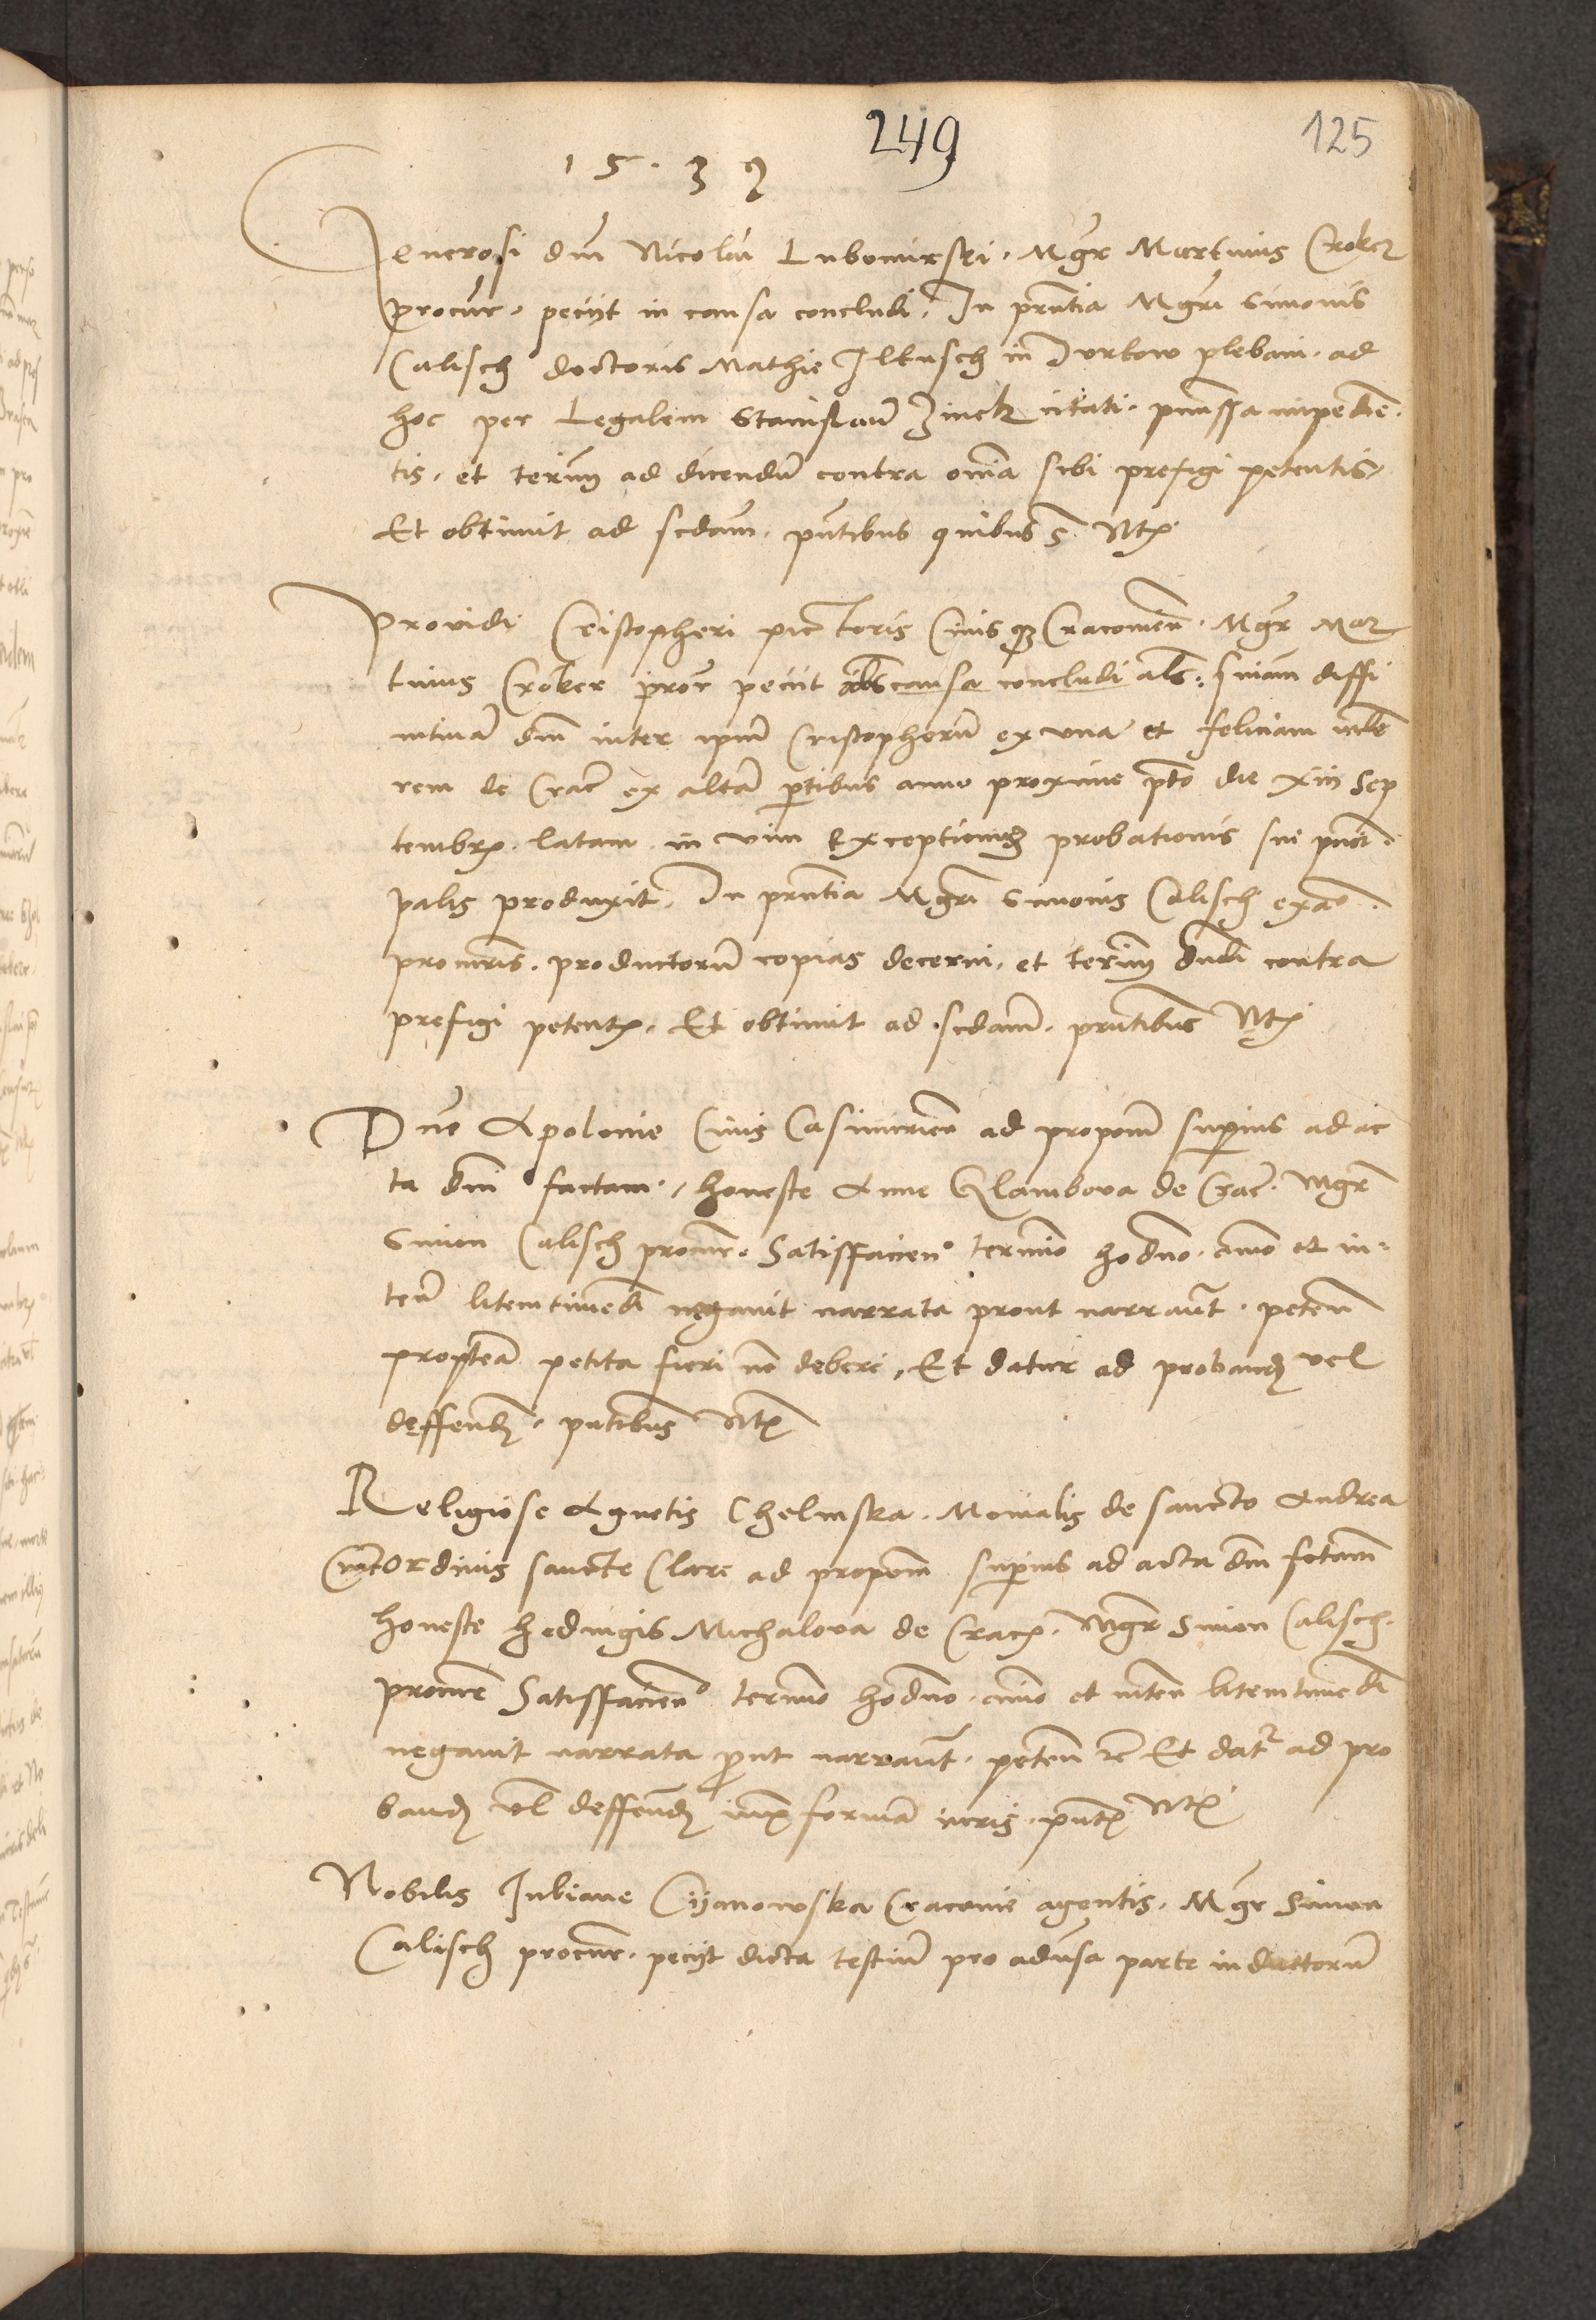 249
125
15.39
Generosi dni Nicolai Lubomirski. Mgr Martinus Croker
procur. peciit in causa concludi. In pntia Mgri Simonis
Calisch doctoris Mathie Ilkusch in plebani. ad
hoc per Legalem Stanislaum Zinck citati. pmissa impedien
tis. et termin ad dicendu contra omia sibi prefigi petentis
Et obtinuit ad scdam. pntibus quibus s. Nt
Providi Cristopheri pictoris Civis Cracovien. Mgr Mar
tinus Croker procr peciit in causa concludi als. sniam diffi
nitiva dni inter ipm Cristopherum ex una et Feliciam mlie
rem de Crac ex altera ptibus anno proxime pto die xiii Sep
tembr. latam in vim exceptionis probationis sui princi
palis produxit. In pntia Mgri Simonis Calisch exao.
procuris. productoru copias decerni. et termin dndi contra
prefigi petent. Et obtinuit ad scdam. pntibus Nt
Dne Apolonie Civis Casimirien ad proponm superius ad ac
ta dni factam. honeste Anne de Crac. Mgr
Simon Calisch procur. Satisffacien termino hodno. animo et in
ten litemtimedi negavit narrata prout narraunt. peten
propterea petita fieri no debere. Et datur ad proband vel
deffend. pntibus Nt
Religiose Agnetis Chelmska. Monialis de sancto Andrea
Crac Ordinis sancte Clare ad proponm superius ad acta dni fctam
honeste Hedvigis Michalova de Crac. Mgr Simon Calisch.
procur Satisffacien termino hodno. animo et inten litemtimedi
negavit narrata prout narraunt. peten rc Et datr ad pro
band vl deffend iux forma iuris. pnt Nt
Nobilis Iuliane Cijanowska Cracovie agentis. Mgr Simon
Calisch procur. peciit dicta testium pro adversa parte inductoru